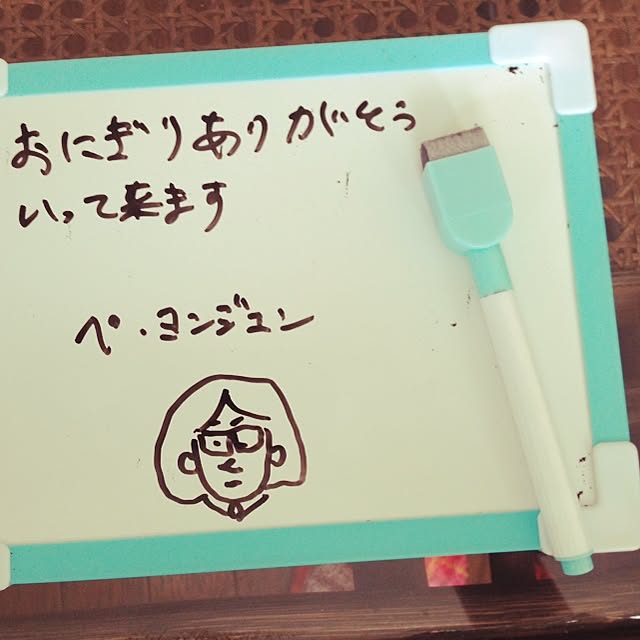 おにぎりありがそう
いって来ます
ペ・ヨンジュン